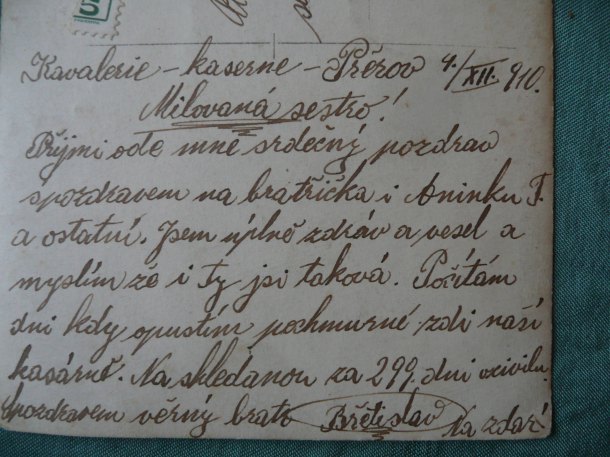 Kavalerie - kaserne - Přěrov 4./XII. 910.
Milovaná sestro!
Přijmi ode mně srdečný pozdrav
spozdravem na bratřička i Aninku F.
a ostatní. Jsem úplně zdráv a vesel a
myslím že i Ty jsi taková. Počítám
dni kdy opustím pochmurné zdi naší
kasárně. Na shledanou za 299. dni vcivilu.
Spozdravem věrný bratr Břetislav Na zdar!